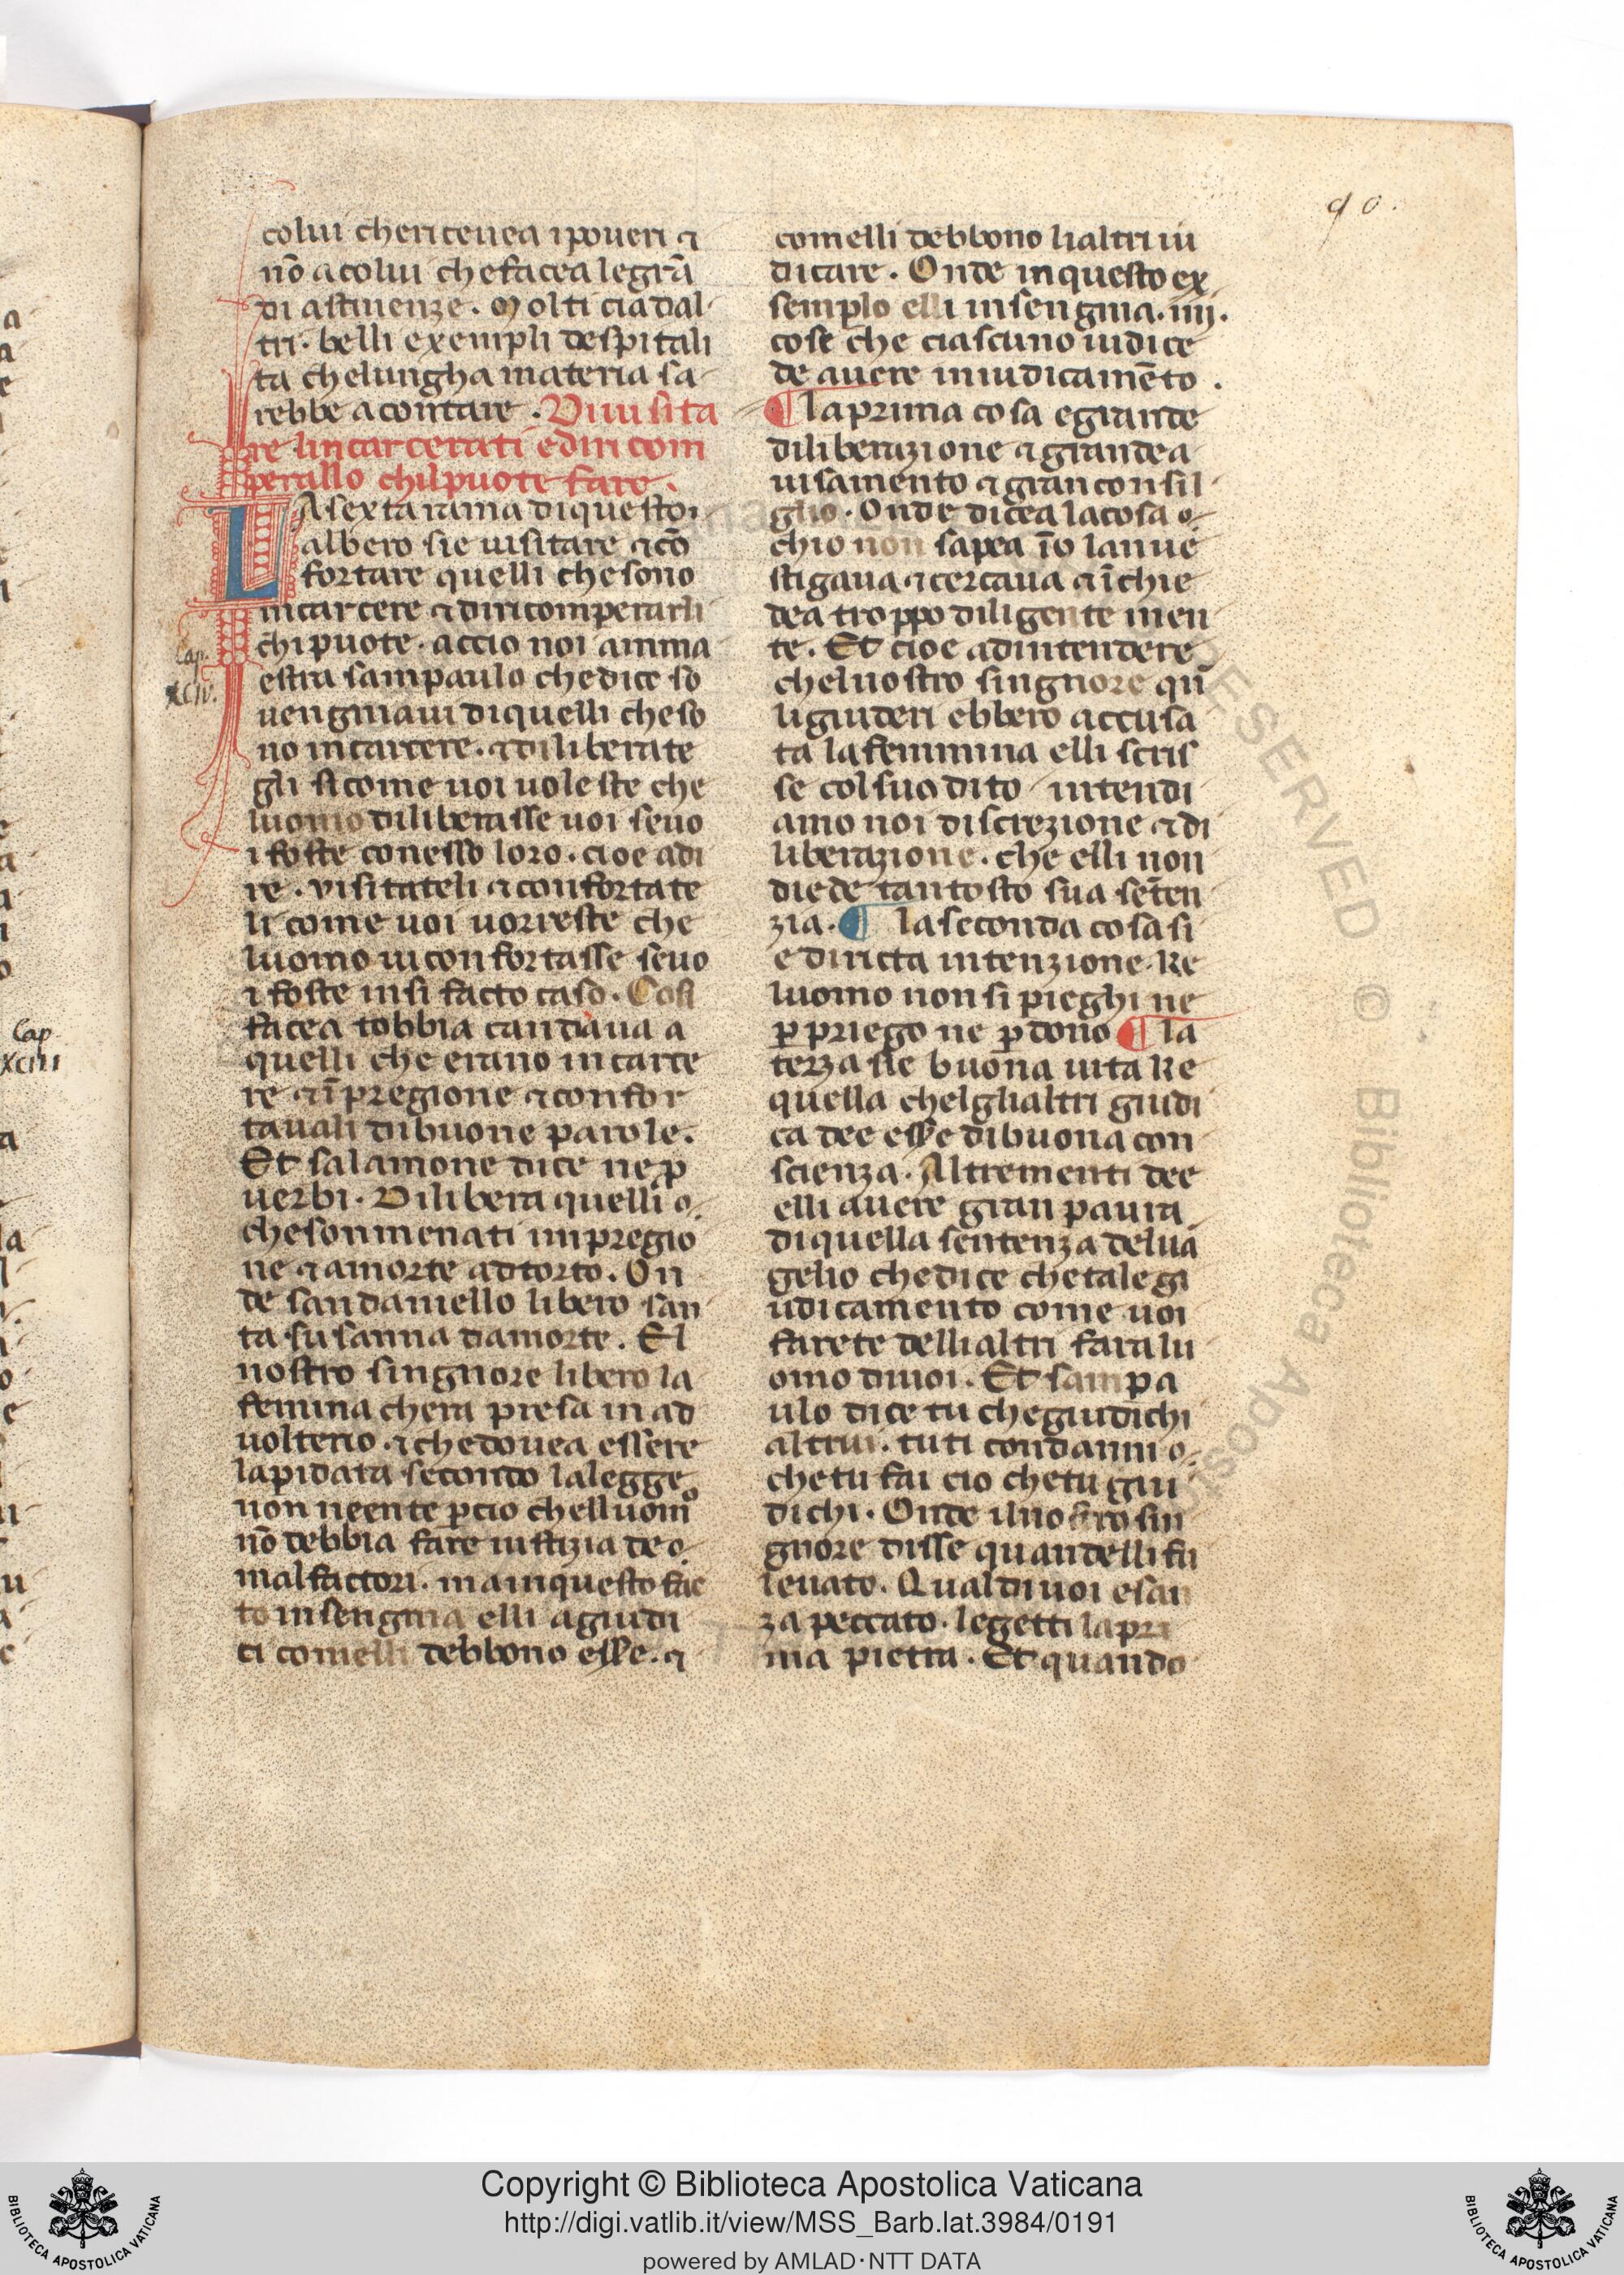 90.
colui che riceuea i poueri ⁊
nō a colui che facea le grā
di astinenze. Molti cia dal
tri. belli exempli despitali
ta che lungha materia sa
rebbe a contare. Di uisita
re lincarcerati e di ricom
perallo chil puote fare.
LA sexta rama di questo
albero sie uisitare ⁊ cō
fortare quelli che sono
in carcere ⁊ di ricomperarli
chi puote. accio noi amma
Cap.
XCIV.
estra sam paulo che dice so
uengniaui di quelli che so
no in carcere. ⁊ diliberate
gli si come uoi uoleste che
luomo diliberasse uoi se uo
i foste con esso loro. cioe a di
re. uisitateli ⁊ confortate
li come uoi uorreste che
luomo ui confortasse se uo
i foste in si facto caso. Cosi
facea tobbia candaua a
Cap
XCIII
quelli che erano in carce
re ⁊ ī pregione ⁊ confor
tauali di buone parole.
Et salamone dice ne ꝓ
uerbi. Dilibera quelli
che son menati im pregio
ne ⁊ a morte ad torto. On
de san daniello libero san
ta susanna da morte. El
nostro singnore libero la
femina chera presa in ad
uolterio. ⁊ che douea essere
lapidata secondo la legge
non neente ꝑcio chelluomo
nō debbia fare iustizia de
malfactori. ma in questo fac
to insengnia elli a giudi
ci comelli debbono esse. ⁊
comelli debbono li altri iu
dicare. Onde in questo ex
semplo elli insengnia. iiij.
cose che ciascuno iudice
de auere in iudicamēto.
¶ la prima cosa e grande
diliberazione ⁊ grande a
uisamento ⁊ gran consil
glio. Onde dicea la cosa
chio non sapea īo lanue
stigaua ⁊ cercaua ⁊ īchie
dea troppo diligente men
te. Et cioe ad intendere
chel nostro singnore qn̄
li giuderi ebbero accusa
ta la femmina elli scris
se col suo dito intendi
amo noi discrezione ⁊ di
liberazione. che elli non
diede tantosto sua sētēn
zia. ¶ la seconda cosa si
e diricta intenzione. ke
luomo non si pieghi ne
ꝑ priego ne ꝑ dono ¶ la
terza sie buona uita ke
quella chel gli altri giudi
ca dee esse di buona con
scienza. Altrementi dee
elli auere gran paura
di quella sentenza del uā
gelio che dice che tale gi
udicamento come uoi
farete delli altri fara lu
omo di uoi. Et sam pa
ulo dice tu che giudichi
altrui. tu ti condanni
che tu fai cio che tu giu
dichi. Onde il nostro sin
gnore disse quandelli fu
leuato. Qual di uoi e san
za peccato. le getti la pri
ma pietra. Et quando
Copyright © Biblioteca Apostolica Vaticana
http://digi.vatlib.it/view/MSS_Barb.lat.3984/0191
powered by AMLAD·NTT DATA
BIBLIOTECA APOSTOLICA VATICANA
BIBLIOTECA APOSTOLICA VATICANA